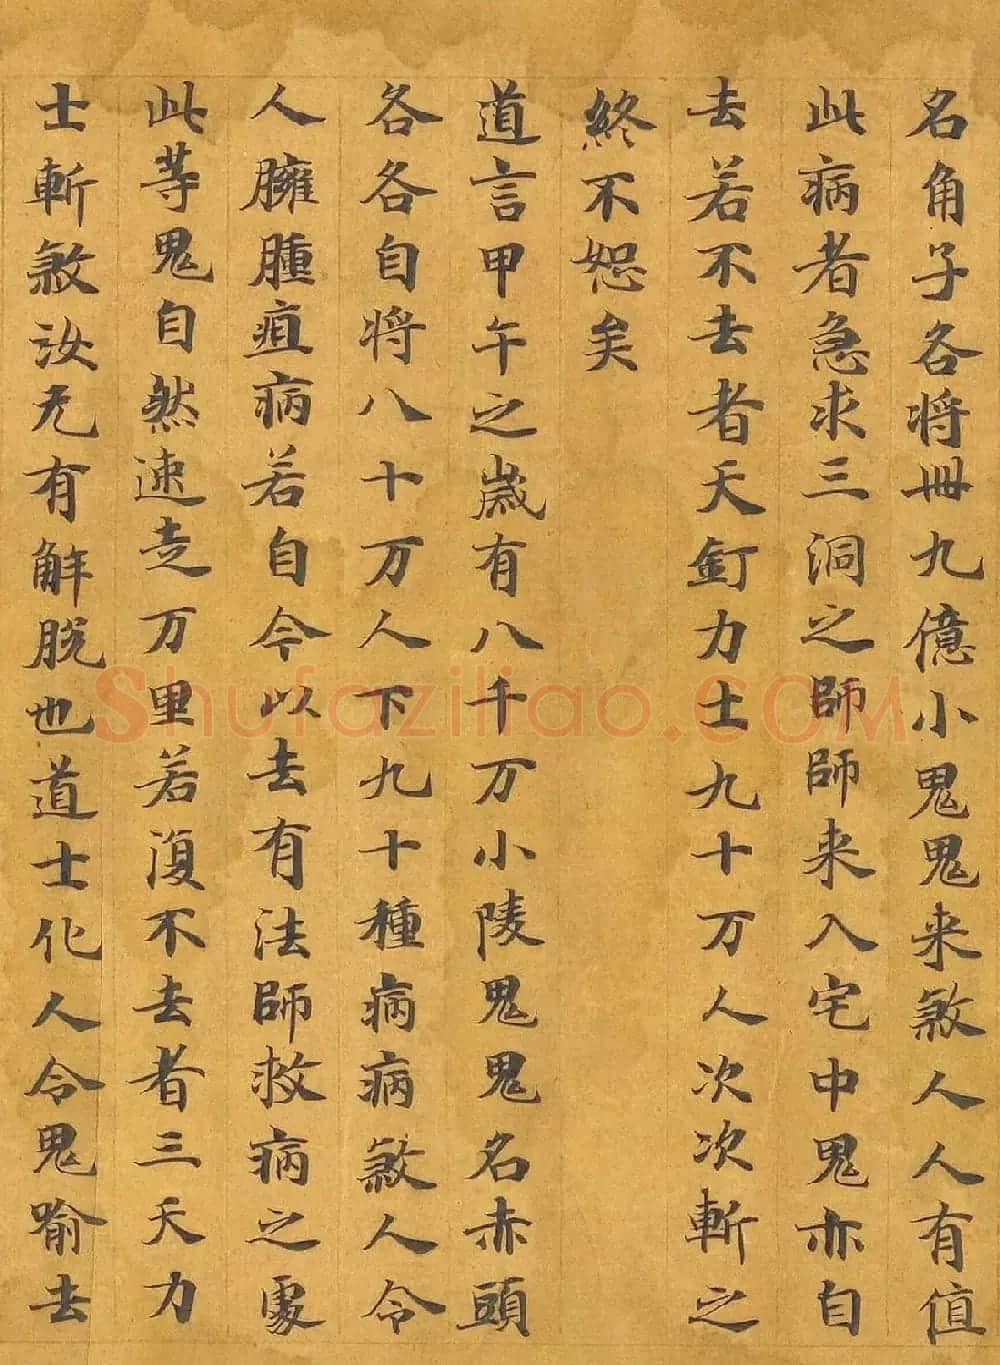 名角子各将卌九億小鬼鬼来煞人人有值
此病者急求三洞之師師来入宅中鬼亦自
去若不去者天釘力士九十万人次次斬之
終不恕矣
道言甲午之歲有八千万小陵鬼鬼名赤頭
各各自将八十万人下九十種病病煞人令
人臃腫疽病若自今以去有法師救病之處
此等鬼自然速走万里若復不去者三天力
士斬煞汝无有解脱也道士化人令鬼喻去
Shufaziliao.COM